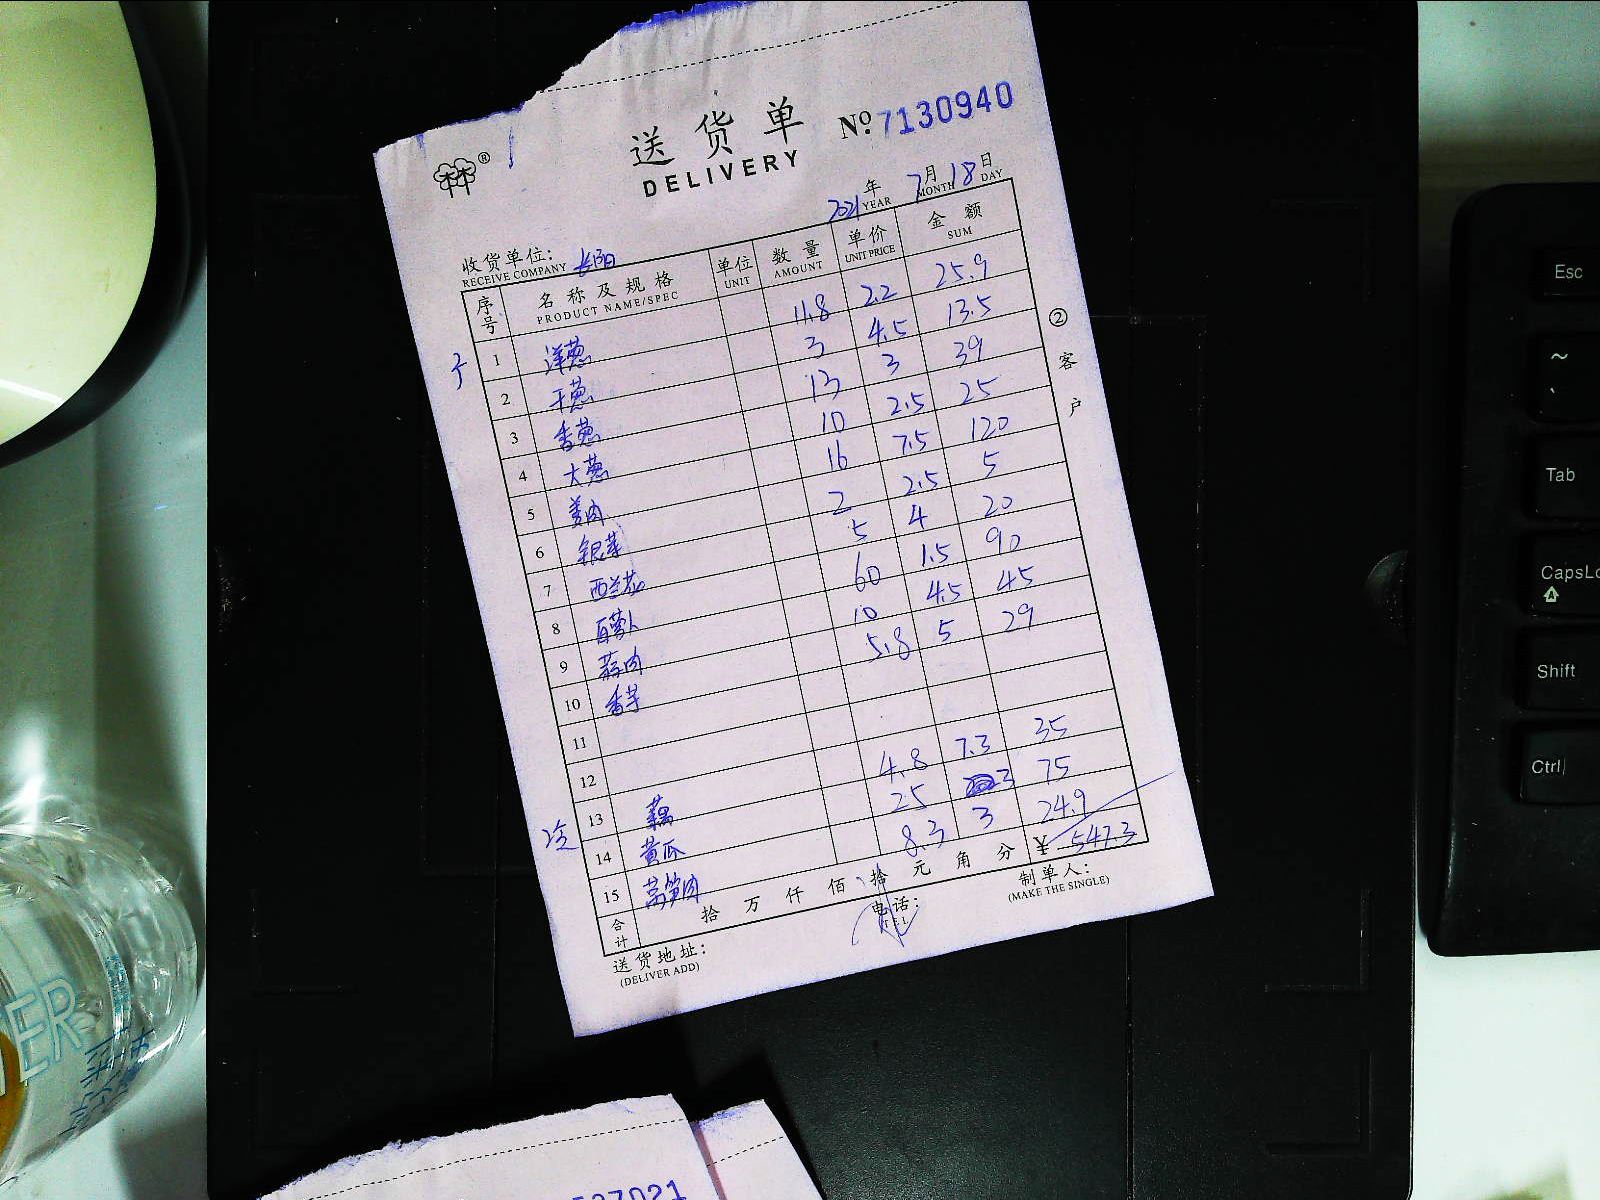 送货单 No. 7130940
DELIVERY
2021 年 7 月 18 日
YEAR MONTH DAY
收货单位: 长阳
RECEIVE COMPANY
序号 名称及规格 单位 数量 单价 金额
PRODUCT NAME/SPEC UNIT AMOUNT UNIT PRICE SUM
1 洋葱 11.8 2.2 25.9
2 干葱 3 4.5 13.5
3 香葱 13 3 39
4 大葱 10 2.5 25
5 姜肉 16 7.5 120
6 银芽 2 2.5 5
7 西兰花 5 4 20
8 白萝卜 60 1.5 90
9 蒜肉 10 4.5 45
10 香芋 5.8 5 29
11
12
13 藕 4.8 7.3 35
冷 14 黄瓜 25 3 75
15 莴笋肉 8.3 3 24.9
合计 拾 万 仟 佰 拾 元 角 分 ¥ 547.3
送货地址: 电话: 制单人:
(DELIVER ADD) TEL (MAKE THE SINGLE)
② 客户
Esc
~
Tab
CapsLo
Shift
Ctrl
527021